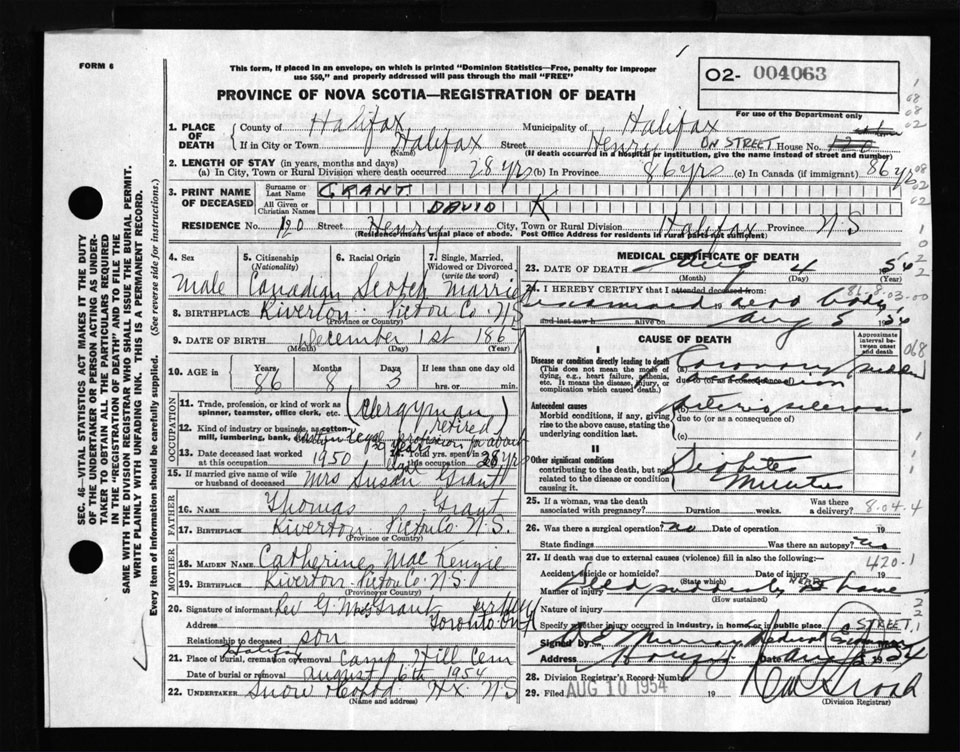 FORM 6
This form, if placed in an envelope, on which is printed "Dominion Statistics—Free, penalty for improper
use $50," and properly addressed will pass through the mail "FREE"
02- 004063
PROVINCE OF NOVA SCOTIA—REGISTRATION OF DEATH
For use of the Department only
1. PLACE OF DEATH { County of Halifax Municipality of Halifax
If in City or Town Halifax Street Henry ON STREET House No. 120
(Name) (If death occurred in a hospital or institution, give the name instead of street and number)
2. LENGTH OF STAY (in years, months and days)
(a) In City, Town or Rural Division where death occurred 28 yrs (b) In Province 86 yrs (c) In Canada (if immigrant) 86 yrs
3. PRINT NAME OF DECEASED { Surname or Last Name GRANT
All Given or Christian Names DAVID K
RESIDENCE No. 120 Street Henry City, Town or Rural Division Halifax Province N S
(Residence means usual place of abode. Post Office Address for residents in rural parts not sufficient)
4. Sex 5. Citizenship (Nationality) 6. Racial Origin 7. Single, Married, Widowed or Divorced (write the word)
Male Canadian Scotch Married
8. BIRTHPLACE Riverton Pictou Co. N S
(Province or Country)
9. DATE OF BIRTH December 1st 1867
(Month) (Day) (Year)
10. AGE in { Years Months Days If less than one day old
86 8 3 hrs. or min.
OCCUPATION
11. Trade, profession, or kind of work as spinner, teamster, office clerk, etc. Clergyman
12. Kind of industry or business, as cotton-mill, lumbering, bank, retired
13. Date deceased last worked at this occupation 1950 14. Total yrs. spent in this occupation 28 yrs
15. If married give name of wife or husband of deceased Mrs Susan Grant
FATHER
16. NAME Thomas Grant
17. BIRTHPLACE Riverton Pictou Co. N.S.
(Province or Country)
MOTHER
18. MAIDEN NAME Catherine MacKenzie
19. BIRTHPLACE Riverton Pictou Co. N.S.
(Province or Country)
20. Signature of informant Rev G. Grant
Address Toronto Ont
Relationship to deceased son
21. Place of burial, cremation or removal Halifax Camp Hill Cem
Date of burial or removal August 6th 1954
22. UNDERTAKER Snow & Co Ltd Hx. N S
(Name and address)
MEDICAL CERTIFICATE OF DEATH
23. DATE OF DEATH Aug 4 1954
(Month) (Day) (Year)
24. I HEREBY CERTIFY that I attended deceased from:
examined 19 dead body
and last saw h alive on Aug 5 1954
86-8-03-00
CAUSE OF DEATH
Approximate interval between onset and death
I
Disease or condition directly leading to death
(This does not mean the mode of dying, e.g., heart failure, asthenia, etc. It means the disease, injury, or complication which caused death.)
(a) Coronary occlusion sudden
due to (or as a consequence of)
Antecedent causes
Morbid conditions, if any, giving rise to the above cause, stating the underlying condition last.
(b) arteriosclerosis
due to (or as a consequence of)
(c)
II
Other significant conditions contributing to the death, but not related to the disease or condition causing it
Diabetes Mellitus
068
25. If a woman, was the death associated with pregnancy? Duration weeks. Was there a delivery? 8-04-4
26. Was there a surgical operation? no Date of operation 19
State findings Was there an autopsy? no
27. If death was due to external causes (violence) fill in also the following:
420-1
Accident, suicide or homicide? Date of injury 19
(State which)
Manner of injury Died suddenly NEAR home
(How sustained)
Nature of injury
Specify whether injury occurred in industry, in home or in public place STREET
Signed by Murray Medical Examiner
Address Date Aug 5 1954
28. Division Registrar's Record Number
29. Filed AUG 10 1954 19
(Division Registrar)
SEC. 46—VITAL STATISTICS ACT MAKES IT THE DUTY
OF THE UNDERTAKER OR PERSON ACTING AS UNDER-
TAKER TO OBTAIN ALL THE PARTICULARS REQUIRED
IN THE "REGISTRATION OF DEATH" AND TO FILE THE
SAME WITH THE DIVISION REGISTRAR WHO SHALL ISSUE THE BURIAL PERMIT.
WRITE PLAINLY WITH UNFADING INK. THIS IS A PERMANENT RECORD.
Every item of information should be carefully supplied. (See reverse side for instructions.)